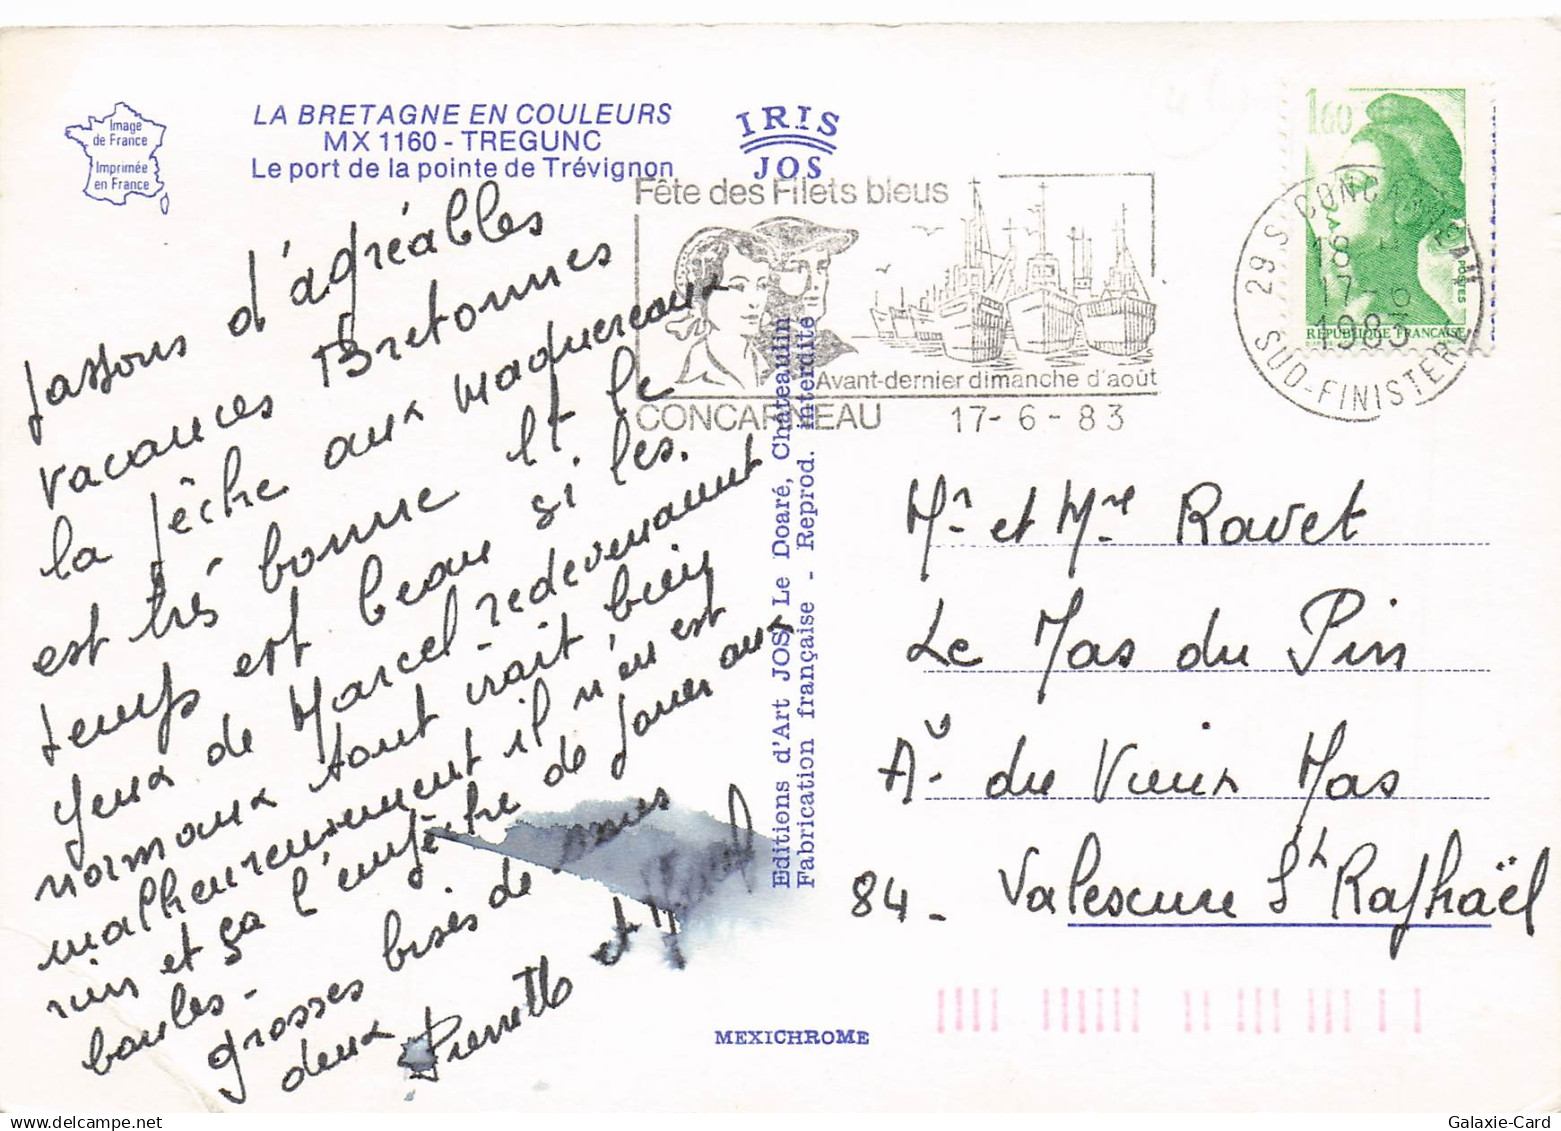 Image
de France
Imprimée
en France
LA BRETAGNE EN COULEURS
MX 1160 - TREGUNC
Le port de la pointe de Trévignon
IRIS
JOS
Fête des Filets bleus
Avant-dernier dimanche d'août
CONCARNEAU 17-6-83
29 S CONCARNEAU
18 H
17-6
1983
SUD-FINISTERE
1,60
POSTES
REPUBLIQUE FRANÇAISE
passons d'agréables
vacances Bretonnes
la pêche aux maquereaux
est très bonne et le
temps est beau si les.
yeux de Marcel-redevenaient
normaux tout irait bien
malheureusement il n'en est
rien et ça l'empêche de jouer aux
boules-
grosses bises de nous
deux
Pierrette et Marcel
Editions d'Art JOS Le Doaré, Châteaulin
Fabrication française - Reprod. interdite
Mr et Mme Ravet
Le Mas du Pin
Av. du Vieux Mas
84- Valescure St Raphaël
MEXICHROME
Galaxie-Card